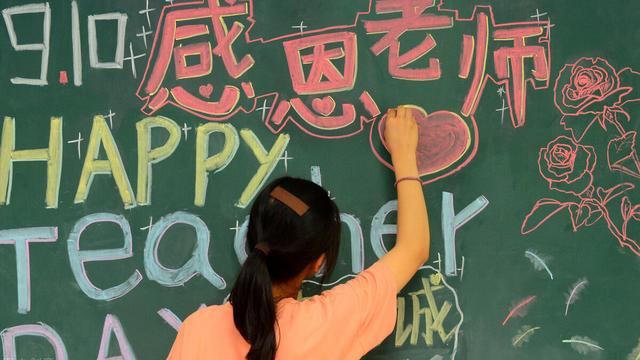 9.10 HAPPY 感恩老师
HAPPY
Teacher
DAY